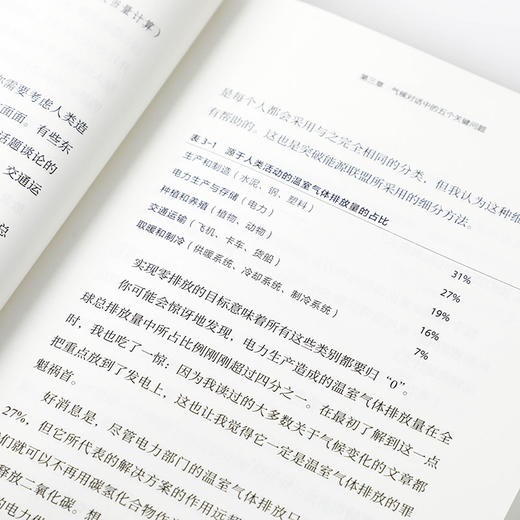 当量计算)
需要考虑人类造
面面。有些东
话题谈论的
交通运
总
第三章 气候对话中的五个关键问题
是每个人都会采用与之完全相同的分类，但我认为这种细
有帮助的。这也是突破能源联盟所采用的细分方法。
表 3-1 源于人类活动的温室气体排放量的占比
生产和制造（水泥、钢、塑料） 31%
电力生产与存储（电力） 27%
种植和养殖（植物、动物） 19%
交通运输（飞机、卡车、货船） 16%
取暖和制冷（供暖系统、冷却系统、制冷系统） 7%
实现零排放的目标意味着所有这些类别都要归“0”。
你可能会惊讶地发现，电力生产造成的温室气体排放量在全
球总排放量中所占比例刚刚超过四分之一。在最初了解到这一点
时，我也吃了一惊：因为我读过的大多数关于气候变化的文章都
把重点放到了发电上，这也让我觉得它一定是温室气体排放的罪
魁祸首。
好消息是，尽管电力部门的温室气体排放只
27%，但它所代表的解决方案的作用远超
们就可以不再用碳氢化合物作
释放二氧化碳。想
的电力供